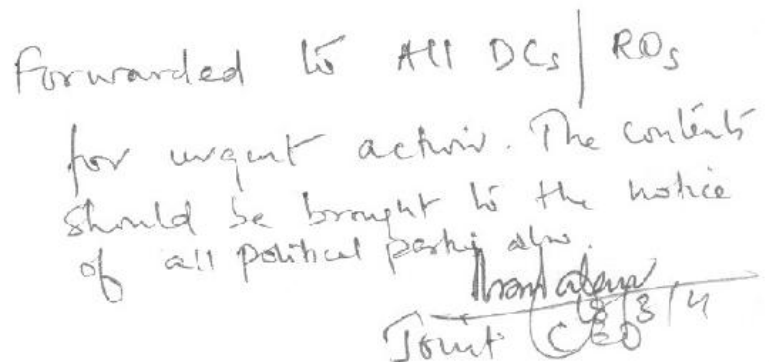 Forwarded to All DCs/ROs
for urgent action. The contents
should be brought to the notice
of all political parties also.
/3/11
Joint CEO